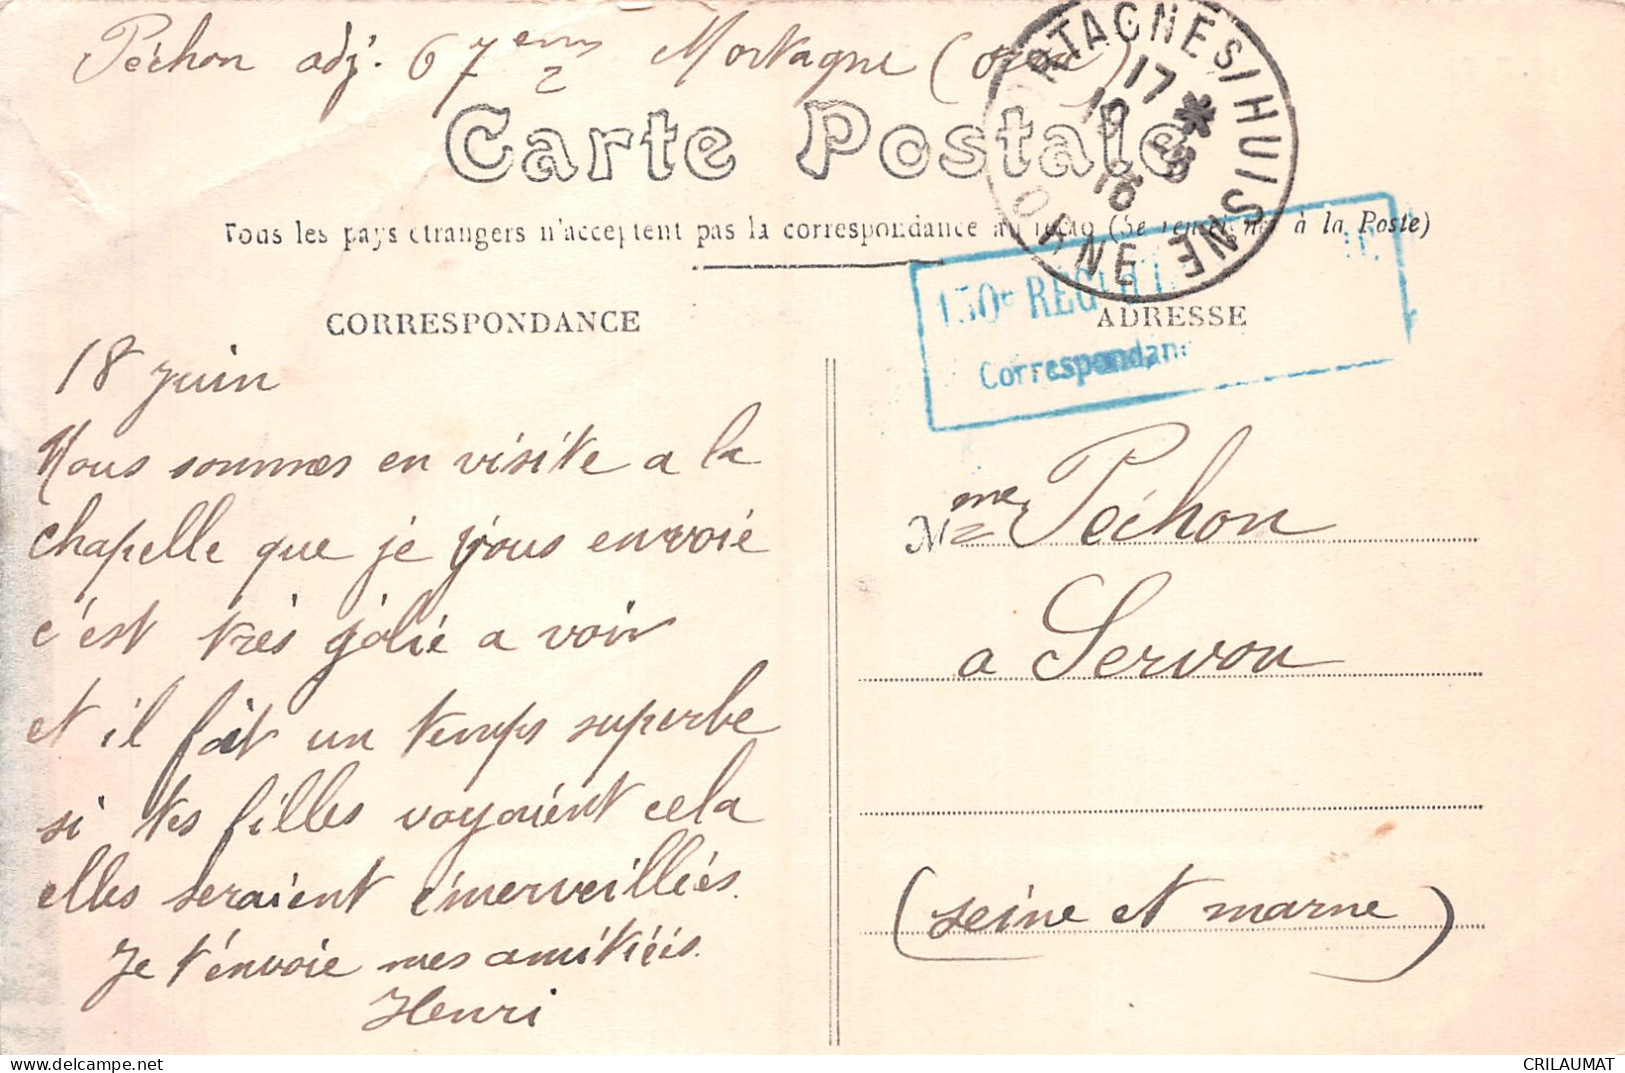 Péchon adj. 67eme Mortagne (orne)
Carte Postale
Tous les pays étrangers n'acceptent pas la correspondance au recto (Se renseigner à la Poste)
MORTAGNE S/HUISNE
17
19
16
ORNE
130e REGI
Correspondan
CORRESPONDANCE
18 juin
Nous sommes en visite a la
chapelle que je vous envoie
c'est très jolie a voir
et il fait un temps superbe
si tes filles voyaient cela
elles seraient émerveillées.
Je t'envoie mes amitiées.
Henri
ADRESSE
Mme Péchon
a Servon
(seine et marne)
CRILAUMAT
www.delcampe.net